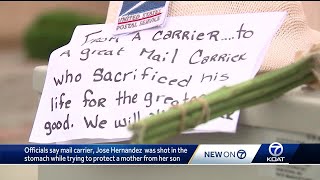 UNITED STATES
POSTAL SERVICE
FROM A CARRIER....to
a Great Mail Carrier
who sacrificed his
life for the greater
good. We will
Officials say mail carrier, Jose Hernandez was shot in the
stomach while trying to protect a mother from her son
NEW ON 7
KOAT